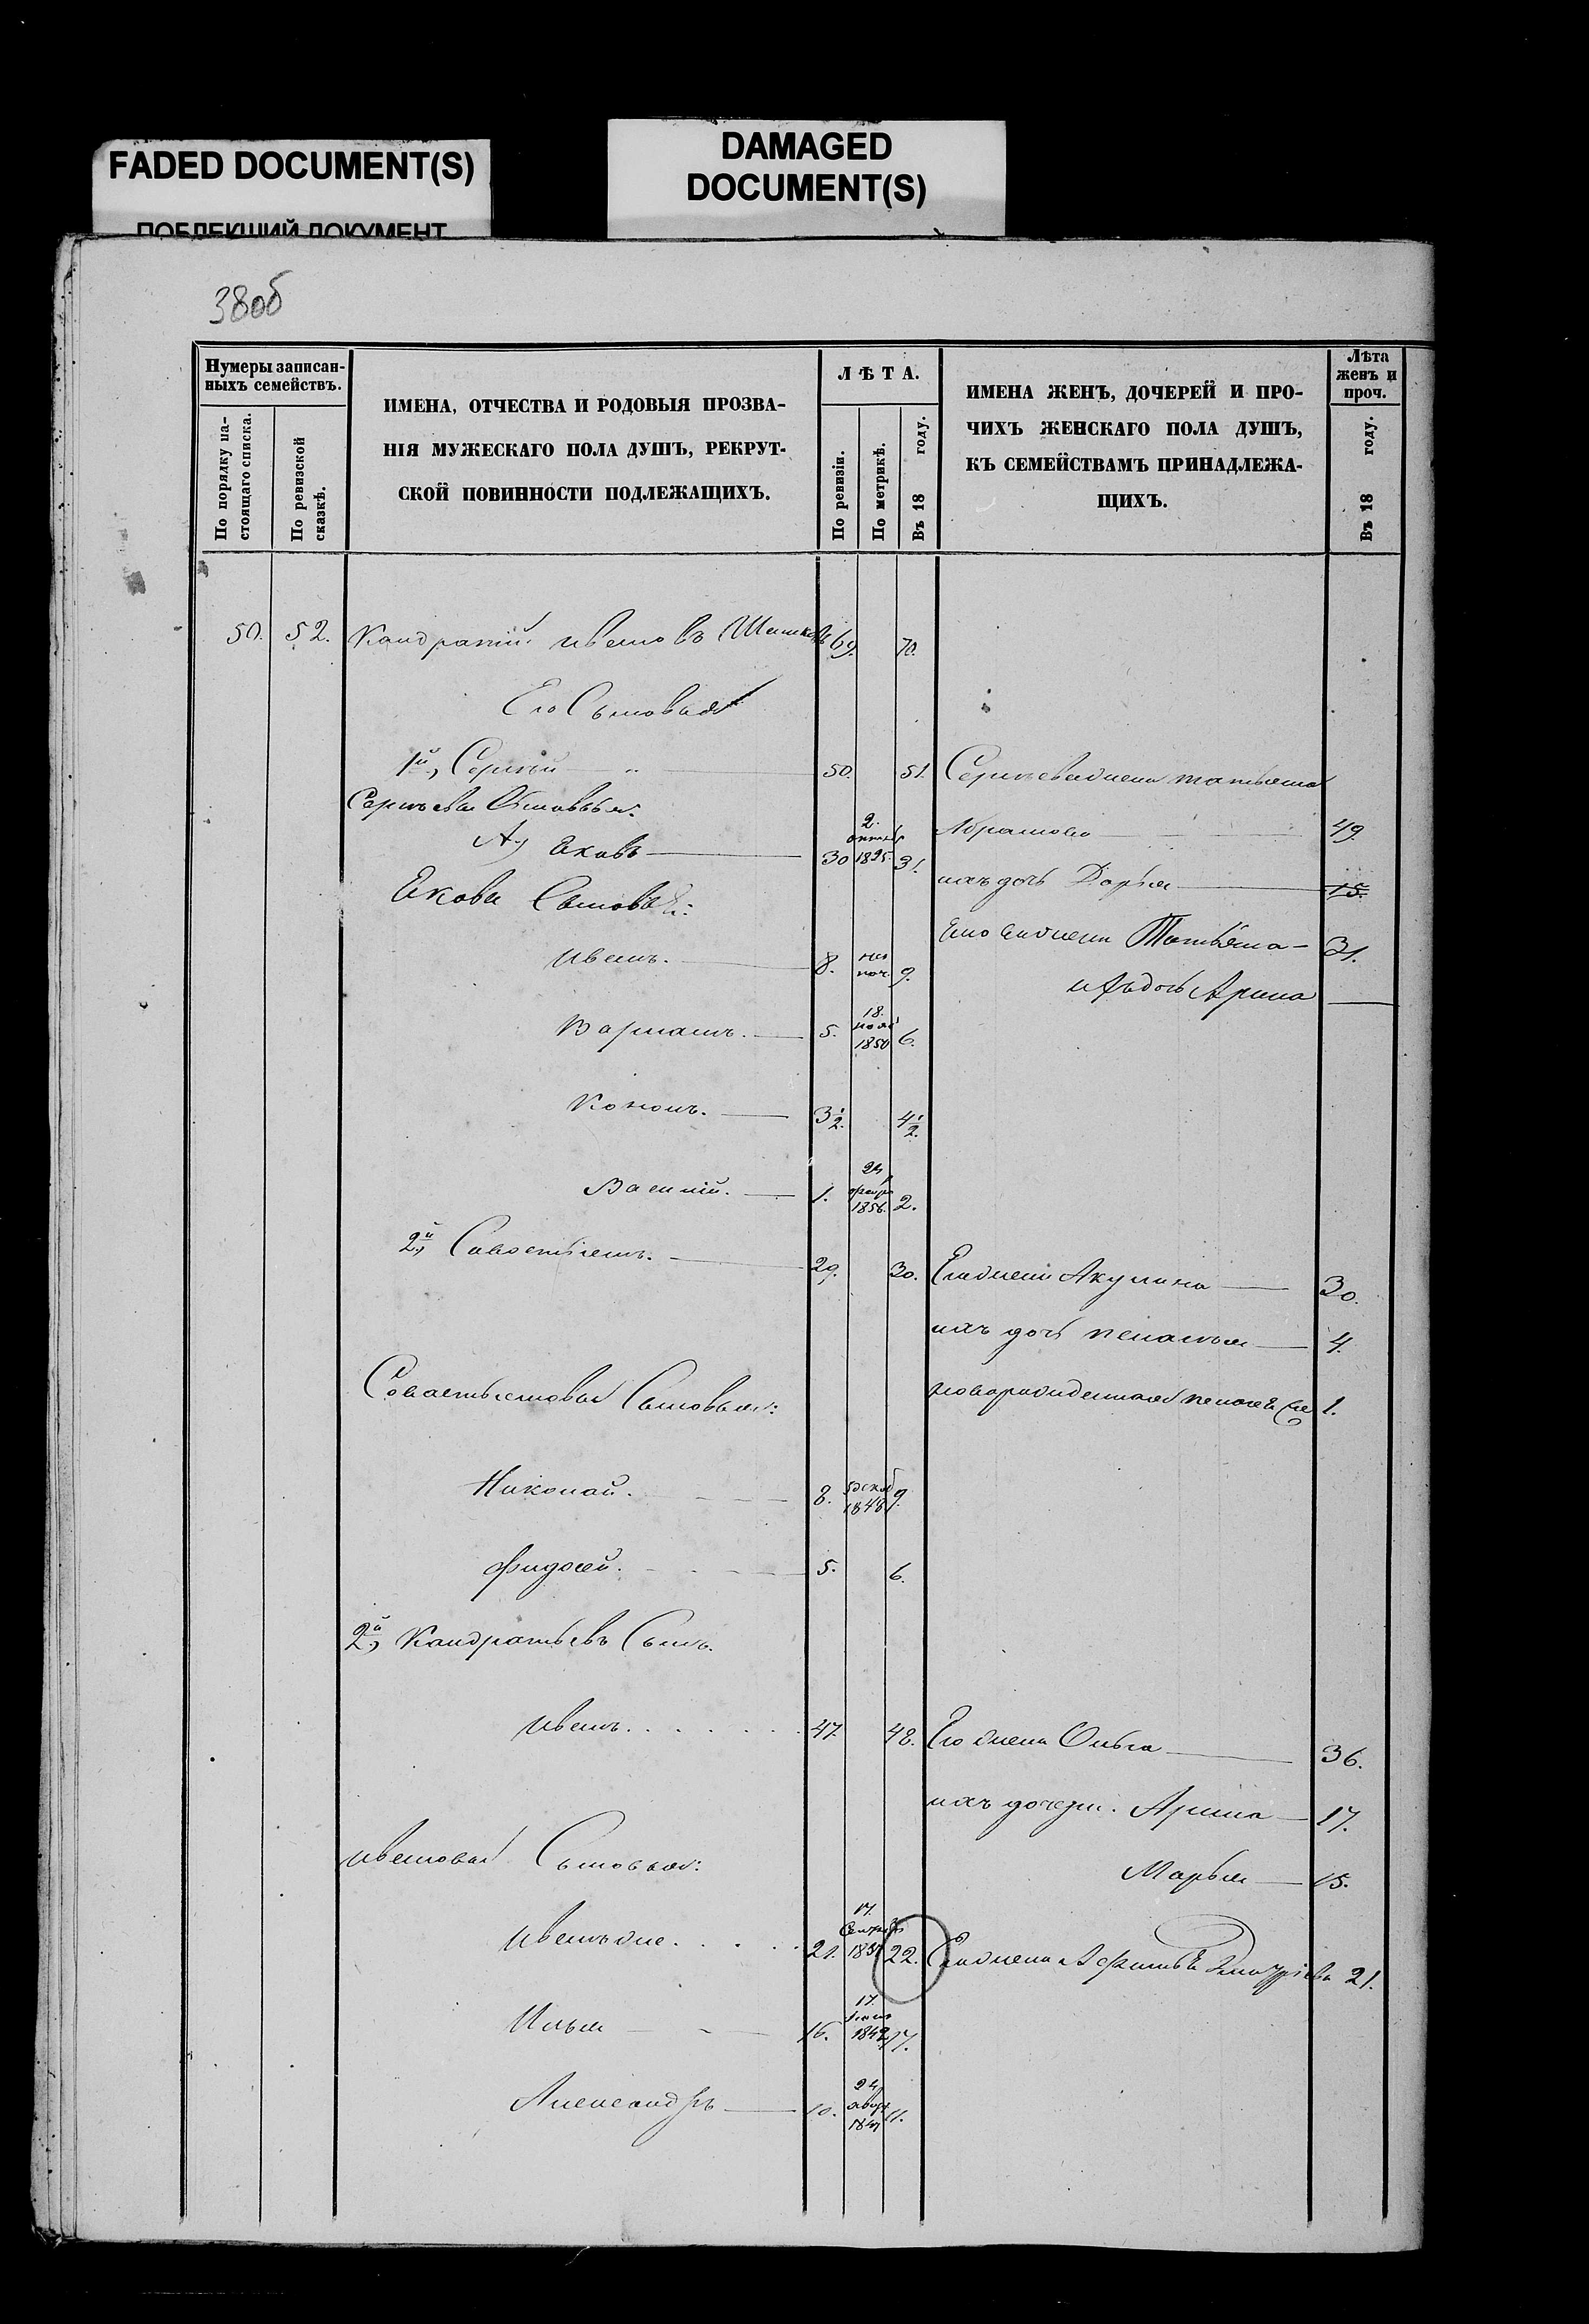 FADED DOCUMENT(S)
ПОБЛЕКШИЙ ДОКУМЕНТ
DAMAGED
DOCUMENT(S)
38об
Нумеры записан-
ныхъ семействъ.
По порядку на-
стоящаго списка.
По ревизской
сказкѣ.
ИМЕНА, ОТЧЕСТВА И РОДОВЫЯ ПРОЗВА-
НІЯ МУЖЕСКАГО ПОЛА ДУШЪ, РЕКРУТ-
СКОЙ ПОВИННОСТИ ПОДЛЕЖАЩИХЪ.
ЛѢТА.
По ревизіи.
По метрикѣ.
Въ 18 году.
ИМЕНА ЖЕНЪ, ДОЧЕРЕЙ И ПРО-
ЧИХЪ ЖЕНСКАГО ПОЛА ДУШЪ,
КЪ СЕМЕЙСТВАМЪ ПРИНАДЛЕЖА-
ЩИХЪ.
Лѣта
женъ и
проч.
Въ 18 году.
50. 52. Кандратій ивановъ 69. 70.
Его Сыновья
1й, Сергѣй 50. 51. Сергѣева жена татьяна
Сергѣевы Сыновья:
Абрамова 49
А, Ековъ 30 2. 1825. 31.
ихъ дочь Дарья 15.
Екова Сыновья:
Екова жена Татьяна 31.
иванъ. 8. 9.
ихъ дочь Арина
5. 18. 1850 6.
Кононъ. 3 1/2. 4 1/2.
Василій. 1. 24 1856. 2.
2й, Савостьянъ. 29. 30. Его жена Акулина 30.
ихъ дочь пелагѣя 4.
Савостьяновы Сыновья:
новорожденная пелагѣя 1.
Николай. 8. 1848 9.
Фидосей. 5. 6.
2й, Кандратьевъ Сынъ.
иванъ 47. 48. Его жена Ольга 36.
ихъ дочери. Арина 17.
ивановы Сыновья:
Марья 15.
иванъ же 21. 17. 22. Его жена 21.
Илья 16. 17. 1842 17.
Александръ 10. 24 11.